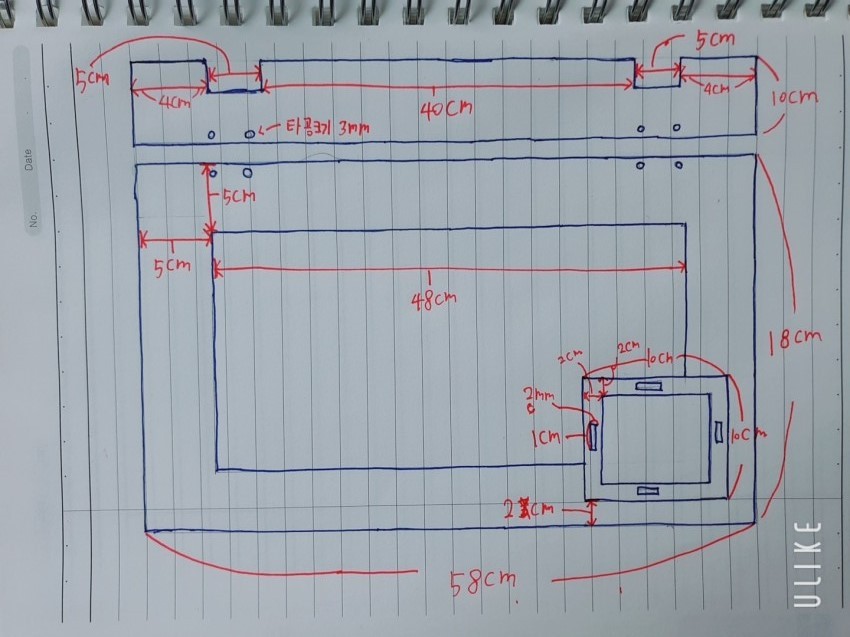 5cm
5cm
4cm
40cm
4cm
10cm
타공크기 3mm
5cm
5cm
48cm
18cm
2cm
2cm
10cm
2mm
1cm
10cm
2cm
58cm
No.
Date
ULIKE